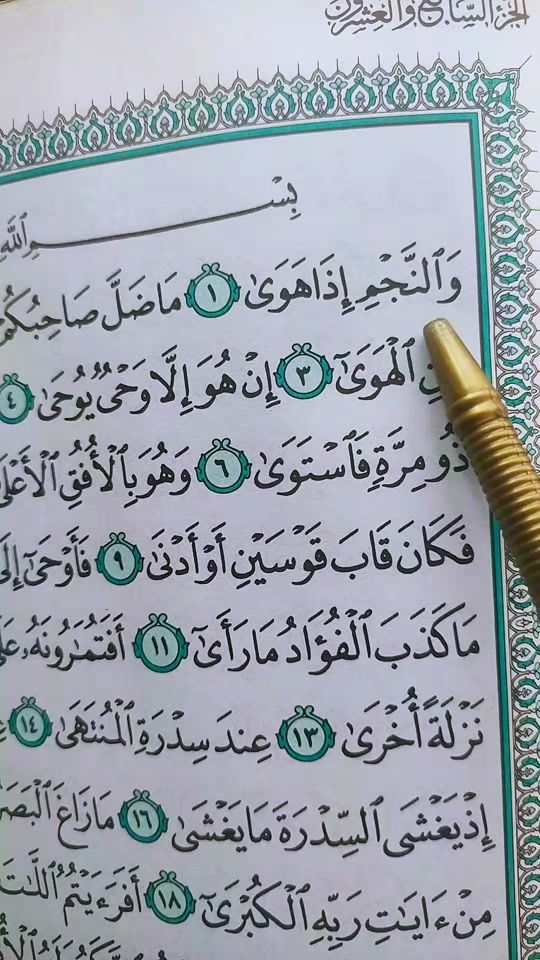 الجزء السابع والعشرون
بِسْمِ ٱللَّهِ
وَٱلنَّجْمِ إِذَا هَوَىٰ ١ مَا ضَلَّ صَاحِبُكُمْ
ٱلْهَوَىٰٓ ٣ إِنْ هُوَ إِلَّا وَحْىٌ يُوحَىٰ ٤
ذُو مِرَّةٍ فَٱسْتَوَىٰ ٦ وَهُوَ بِٱلْأُفُقِ ٱلْأَعْلَىٰ
فَكَانَ قَابَ قَوْسَيْنِ أَوْ أَدْنَىٰ ٩ فَأَوْحَىٰٓ إِلَىٰ
مَا كَذَبَ ٱلْفُؤَادُ مَا رَأَىٰٓ ١١ أَفَتُمَٰرُونَهُۥ عَلَىٰ
نَزْلَةً أُخْرَىٰ ١٣ عِندَ سِدْرَةِ ٱلْمُنتَهَىٰ ١٤
إِذْ يَغْشَى ٱلسِّدْرَةَ مَا يَغْشَىٰ ١٦ مَا زَاغَ ٱلْبَصَرُ
مِنْ ءَايَٰتِ رَبِّهِ ٱلْكُبْرَىٰٓ ١٨ أَفَرَءَيْتُمُ ٱللَّٰتَ